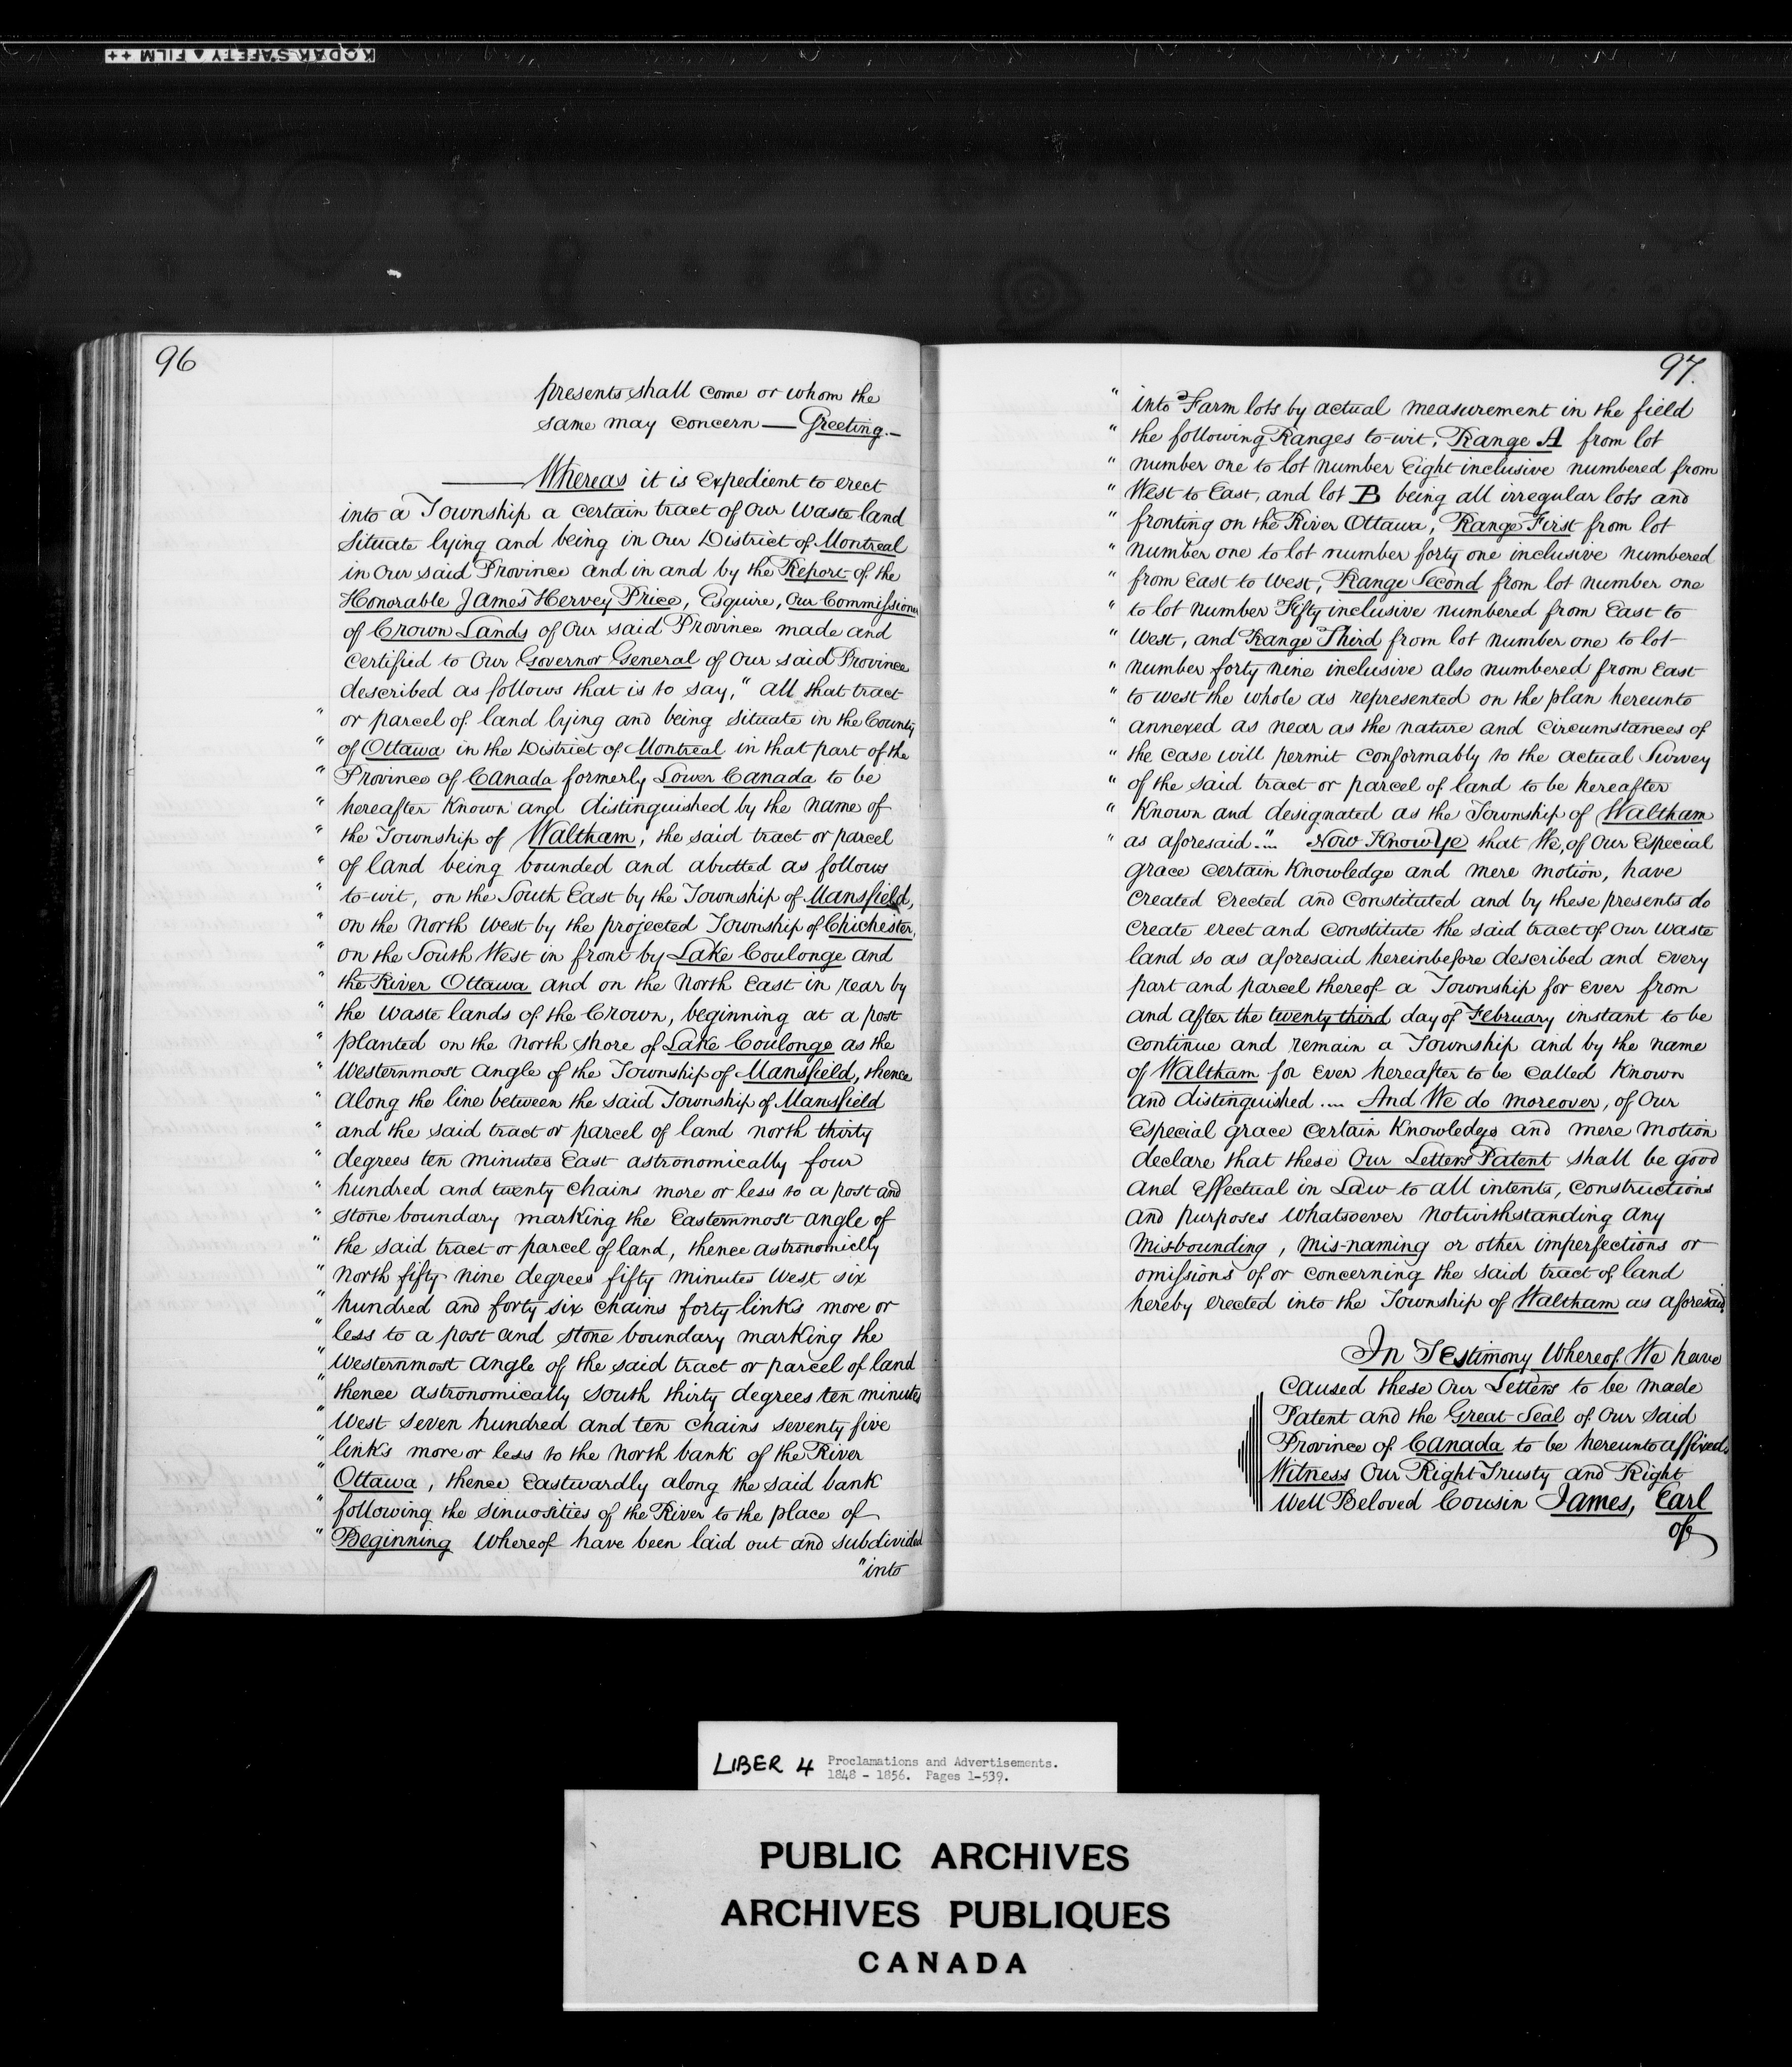 KODAK SAFETY ▲ FILM ++
96
presents shall come or whom the
same may concern — Greeting.—
Whereas it is expedient to erect
into a Township a certain tract of Our Waste land
Situate lying and being in Our District of Montreal
in Our said Province and in and by the Report of the
Honorable James Hervey Price, Esquire, Our Commissioner
of Crown Lands of Our said Province made and
Certified to Our Governor General of Our said Province
described as follows that is to say, " all that tract
" or parcel of land lying and being situate in the County
" of Ottawa in the District of Montreal in that part of the
" Province of Canada formerly Lower Canada to be
" hereafter Known and distinguished by the name of
" the Township of Waltham, the said tract or parcel
" of land being bounded and abutted as follows
" to-wit, on the South East by the Township of Mansfield,
" on the North West by the projected Township of Chichester,
" on the South West in front by Lake Coulonge and
" the River Ottawa and on the North East in rear by
" the Waste lands of the Crown, beginning at a post
" planted on the North Shore of Lake Coulonge as the
" Westernmost Angle of the Township of Mansfield, thence
" Along the line between the said Township of Mansfield
" and the said tract or parcel of land north thirty
" degrees ten minutes East astronomically four
" hundred and twenty Chains more or less to a post and
" stone boundary marking the Easternmost angle of
" the said tract or parcel of land, thence astronomiclly
" North fifty nine degrees fifty minutes West six
" hundred and forty six chains forty links more or
" less to a post and stone boundary marking the
" Westernmost Angle of the said tract or parcel of land
" thence astronomically South thirty degrees ten minutes
" West Seven hundred and ten Chains seventy five
" links more or less to the North bank of the River
" Ottawa, thence Eastwardly along the said bank
" following the Sinuosities of the River to the place of
" Beginning Whereof have been laid out and subdivided
"into
97.
" into Farm lots by actual measurement in the field
" the following Ranges to-wit, Range A from lot
" number one to lot number Eight inclusive numbered from
" West to East, and lot B being all irregular lots and
" fronting on the River Ottawa, Range First from lot
" number one to lot number forty one inclusive numbered
" from East to West, Range Second from lot number one
" to lot number Fifty inclusive numbered from East to
" West, and Range Third from lot number one to lot
" number forty nine inclusive also numbered from East
" to West the whole as represented on the plan hereunto
" annexed as near as the nature and Circumstances of
" the Case will permit Conformably to the actual Survey
" of the said tract or parcel of land to be hereafter
" Known and designated as the Township of Waltham
" as aforesaid." Now Know Ye that We, of Our Especial
grace Certain Knowledge and mere motion, have
Created Erected and Constituted and by these presents do
Create erect and Constitute the said tract of Our Waste
land so as aforesaid hereinbefore described and Every
part and parcel thereof a Township for Ever from
and after the twenty third day of February instant to be
Continue and remain a Township and by the name
of Waltham for Ever hereafter to be Called Known
and distinguished .... And We do moreover, of Our
Especial grace Certain Knowledge and mere motion
declare that these Our Letters Patent shall be good
and Effectual in Law to all intents, Constructions
and purposes Whatsoever Notwithstanding any
Mis-bounding, Mis-naming or other imperfections or
omissions of or concerning the said tract of land
hereby Erected into the Township of Waltham as aforesaid
In Testimony Whereof We have
Caused these Our Letters to be made
Patent and the Great Seal of Our Said
Province of Canada to be hereunto affixed.
Witness Our Right Trusty and Right
Well Beloved Cousin James, Earl
of
LIBER 4 Proclamations and Advertisements.
1848 - 1856. Pages 1-539.
PUBLIC ARCHIVES
ARCHIVES PUBLIQUES
CANADA